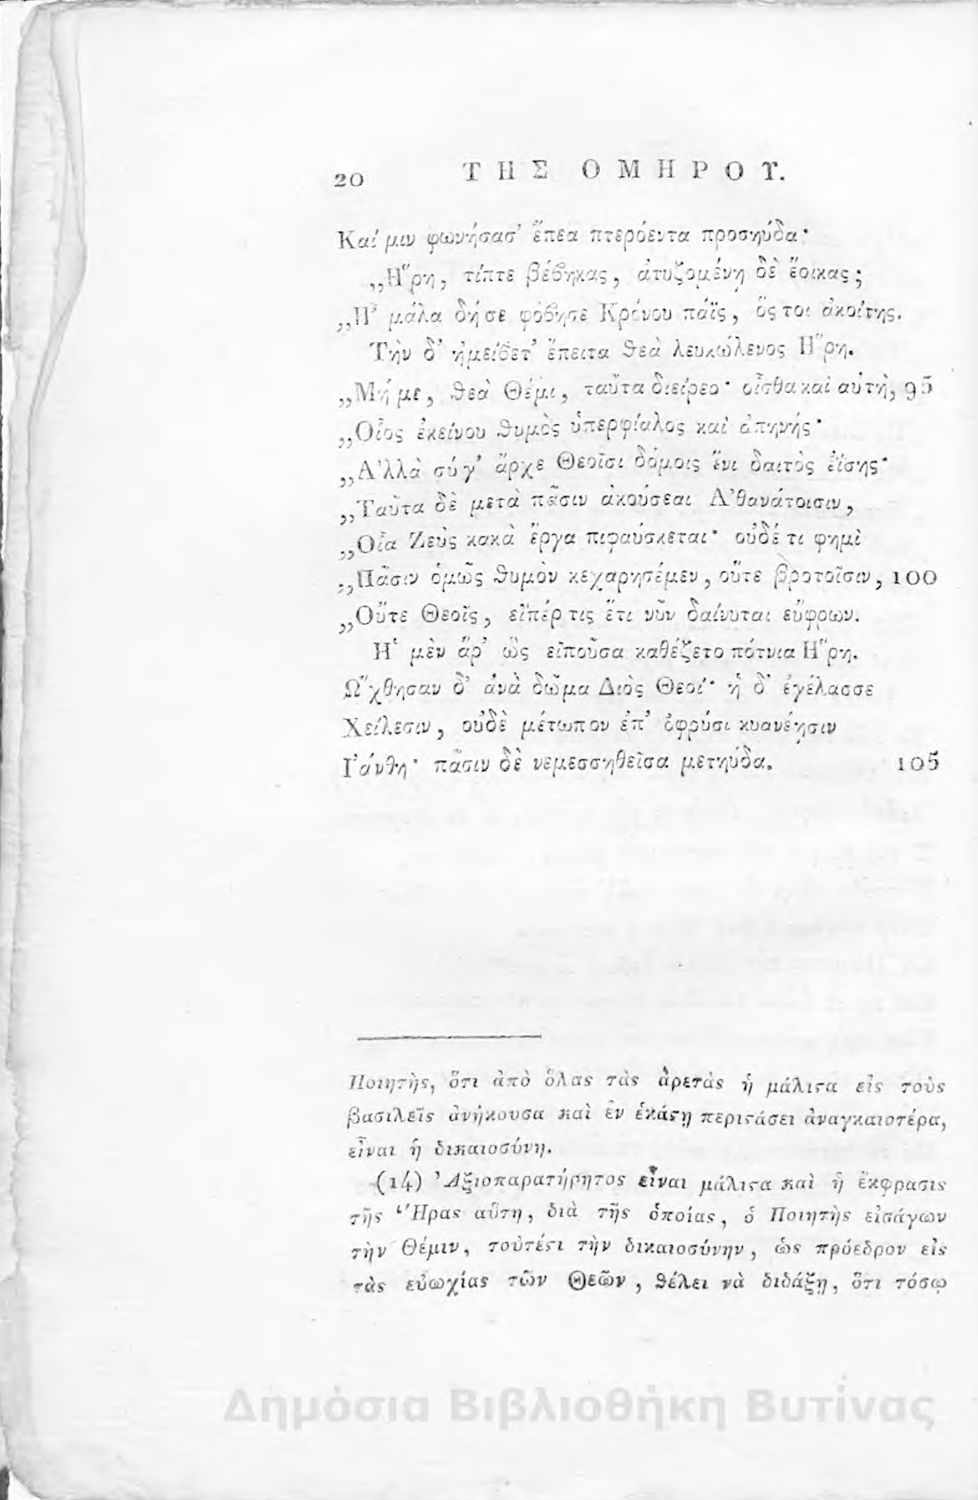 20 ΤΗΣ ΟΜΗΡΟΥ.
Καί μιν φωνήσασ' ἔπεα πτερόεντα προσηύδα·
„Ἥρη, τίπτε βέβηκας, ἀτυζομένῃ δὲ ἔοικας;
„Ἦ μάλα δή σε φόβησε Κρόνου παῖς, ὅς τοι ἀκοίτης.
Τὴν δ' ἠμείβετ' ἔπειτα θεὰ λευκώλενος Ἥρη.
„Μή με, θεὰ Θέμι, ταῦτα διείρεο· οἶσθα καὶ αὐτὴ, 95
„Οἷος ἐκείνου θυμὸς ὑπερφίαλος καὶ ἀπηνής·
„Ἀλλὰ σύ γ' ἄρχε Θεοῖσι δόμοις ἔνι δαιτὸς ἐΐσης·
„Ταῦτα δὲ μετὰ πᾶσιν ἀκούσεαι Ἀθανάτοισιν,
„Οἷα Ζεὺς κακὰ ἔργα πιφαύσκεται· οὐδέ τι φημὶ
„Πᾶσιν ὁμῶς θυμὸν κεχαρησέμεν, οὔτε βροτοῖσιν, 100
„Οὔτε Θεοῖς, εἴπέρ τις ἔτι νῦν δαίνυται εὔφρων.
Ἡ μὲν ἄρ' ὣς εἰποῦσα καθέζετο πότνια Ἥρη.
Ὤχθησαν δ' ἀνὰ δῶμα Διὸς Θεοί· ἡ δ' ἐγέλασσε
Χείλεσιν, οὐδὲ μέτωπον ἐπ' ὀφρύσι κυανέῃσιν
Ἰάνθη· πᾶσιν δὲ νεμεσσηθεῖσα μετηύδα. 105
Ποιητὴς, ὅτι ἀπὸ ὅλας τὰς ἀρετὰς ἡ μάλιϛα εἰς τοὺς
βασιλεῖς ἀνήκουσα καὶ ἐν ἑκάϛῃ περιϛάσει ἀναγκαιοτέρα,
εἶναι ἡ δικαιοσύνη.
(14) Ἀξιοπαρατήρητος εἶναι μάλιϛα καὶ ἡ ἔκφρασις
τῆς Ἥρας αὕτη, διὰ τῆς ὁποίας, ὁ Ποιητὴς εἰσάγων
τὴν Θέμιν, τουτέϛι τὴν δικαιοσύνην, ὡς πρόεδρον εἰς
τὰς εὐωχίας τῶν Θεῶν, θέλει νὰ διδάξῃ, ὅτι τόσῳ
Δημόσια Βιβλιοθήκη Βυτίνας